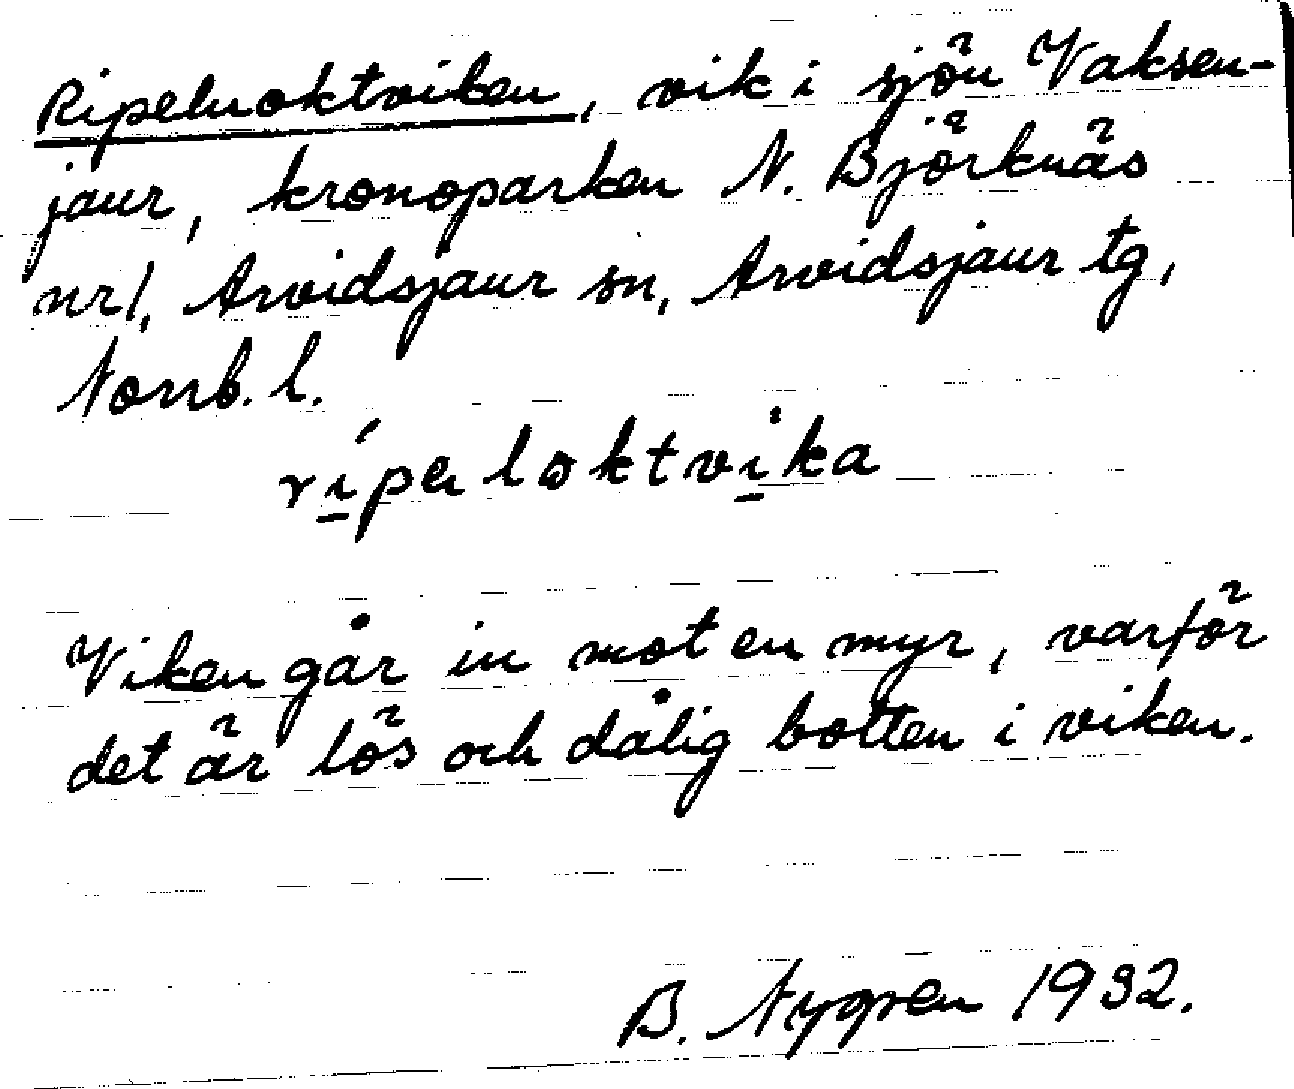 Ripeluoktviken, vik i sjön Vaksen-
jaur, kronoparken N. Björknäs
nr 1, Arvidsjaur sn, Arvidsjaur tg,
Norrb. l.
vik
Viken går in mot en myr, varför
det är lös och dålig botten i viken.
B. Nygren 1932.